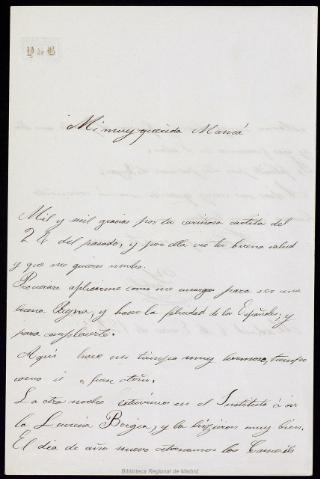 Mi muy querida Mamá
Mil y mil gracias por tu cariñosa cartita del
24 del pasado, y por ella veo tu buena salud
y que me quieres mucho.
Procurare aplicarme como me encargas para ser una
buena Reyna, y hacer la felicidad de los Españoles, y
para complacerte.
Aquí hace un tiempo muy hermoso,
como si fuese otoño.
La otra noche estuvimos en el Instituto á oir
la Lucrecia Borgia, y la hizieron muy bien.
El dia de año nuevo estrenamos los
Biblioteca Regional de Madrid